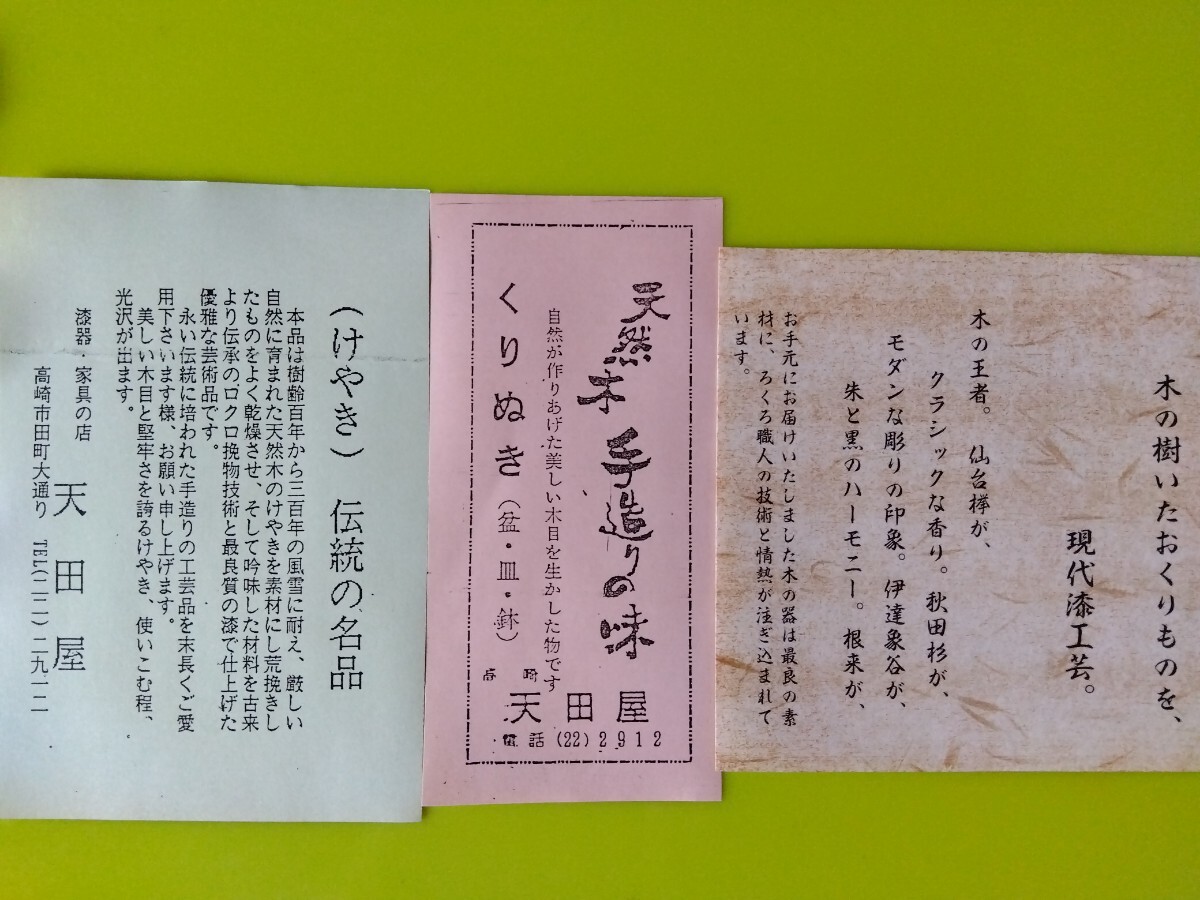 木の樹いたおくりものを、
現代漆工芸。
木の王者。 仙台欅が、
クラシックな香り。秋田杉が、
モダンな彫りの印象。伊達象谷が、
朱と黒のハーモニー。根来が、
お手元にお届けいたしました木の器は最良の素
材に、ろくろ職人の技術と情熱が注ぎ込まれて
います。
天然木 手造りの味
自然が作りあげた美しい木目を生かした物です
くりぬき(盆・皿・鉢)
高崎
天田屋
電話 (22) 2912
(けやき) 伝統の名品
本品は樹齢百年から三百年の風雪に耐え、厳しい
自然に育まれた天然木のけやきを素材にし荒挽きし
たものをよく乾燥させ、そして吟味した材料を古来
より伝承のロクロ挽物技術と最良質の漆で仕上げた
優雅な芸術品です。
永い伝統に培われた手造りの工芸品を末長くご愛
用下さいます様、お願い申し上げます。
美しい木目と堅牢さを誇るけやき、使いこむ程、
光沢が出ます。
漆器・家具の店 天田屋
高崎市田町大通り TEL(二二)二九一二